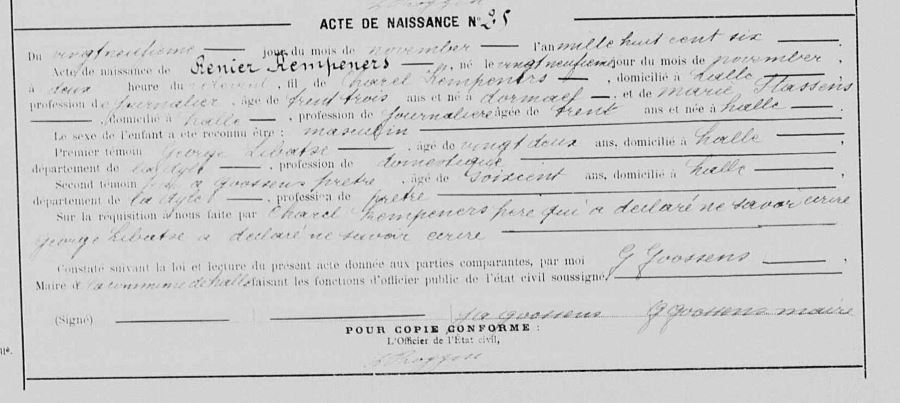 ACTE DE NAISSANCE No 25
Du vingtneufieme jour du mois de november l'an mille huit cent six,
Acte de naissance de Renier Kempeners, né le vingtneufieme jour du mois de november,
à deux heure du, fil de Charel Kempeners, domicilié à halle,
profession de journalier, âgé de trent trois ans et né à dormael et de marie Hassens
domicilié à halle, profession de journaliere âgée de trent ans et née à halle,
Le sexe de l'enfant a été reconnu être : masculin
Premier témoin George Libatse, âgé de vingt deux ans, domicilié à halle,
département de la dyle, profession de domestique
Second témoin a goossens pretre, âgé de soixcent ans, domicilié à halle,
département de la dyle, profession de pretre
Sur la réquisition à nous faite par Charel Kempeners pere qui a declaré ne savoir ecrire
George Libatse a declaré ne savoir ecrire
Constaté suivant la loi et lecture du présent acte donnée aux parties comparantes, par moi G Goossens,
Maire d la commune de halle faisant les fonctions d'officier public de l'état civil soussigné,
(Signé) goossens G goossens maire
POUR COPIE CONFORME :
L'Officier de l'État civil,